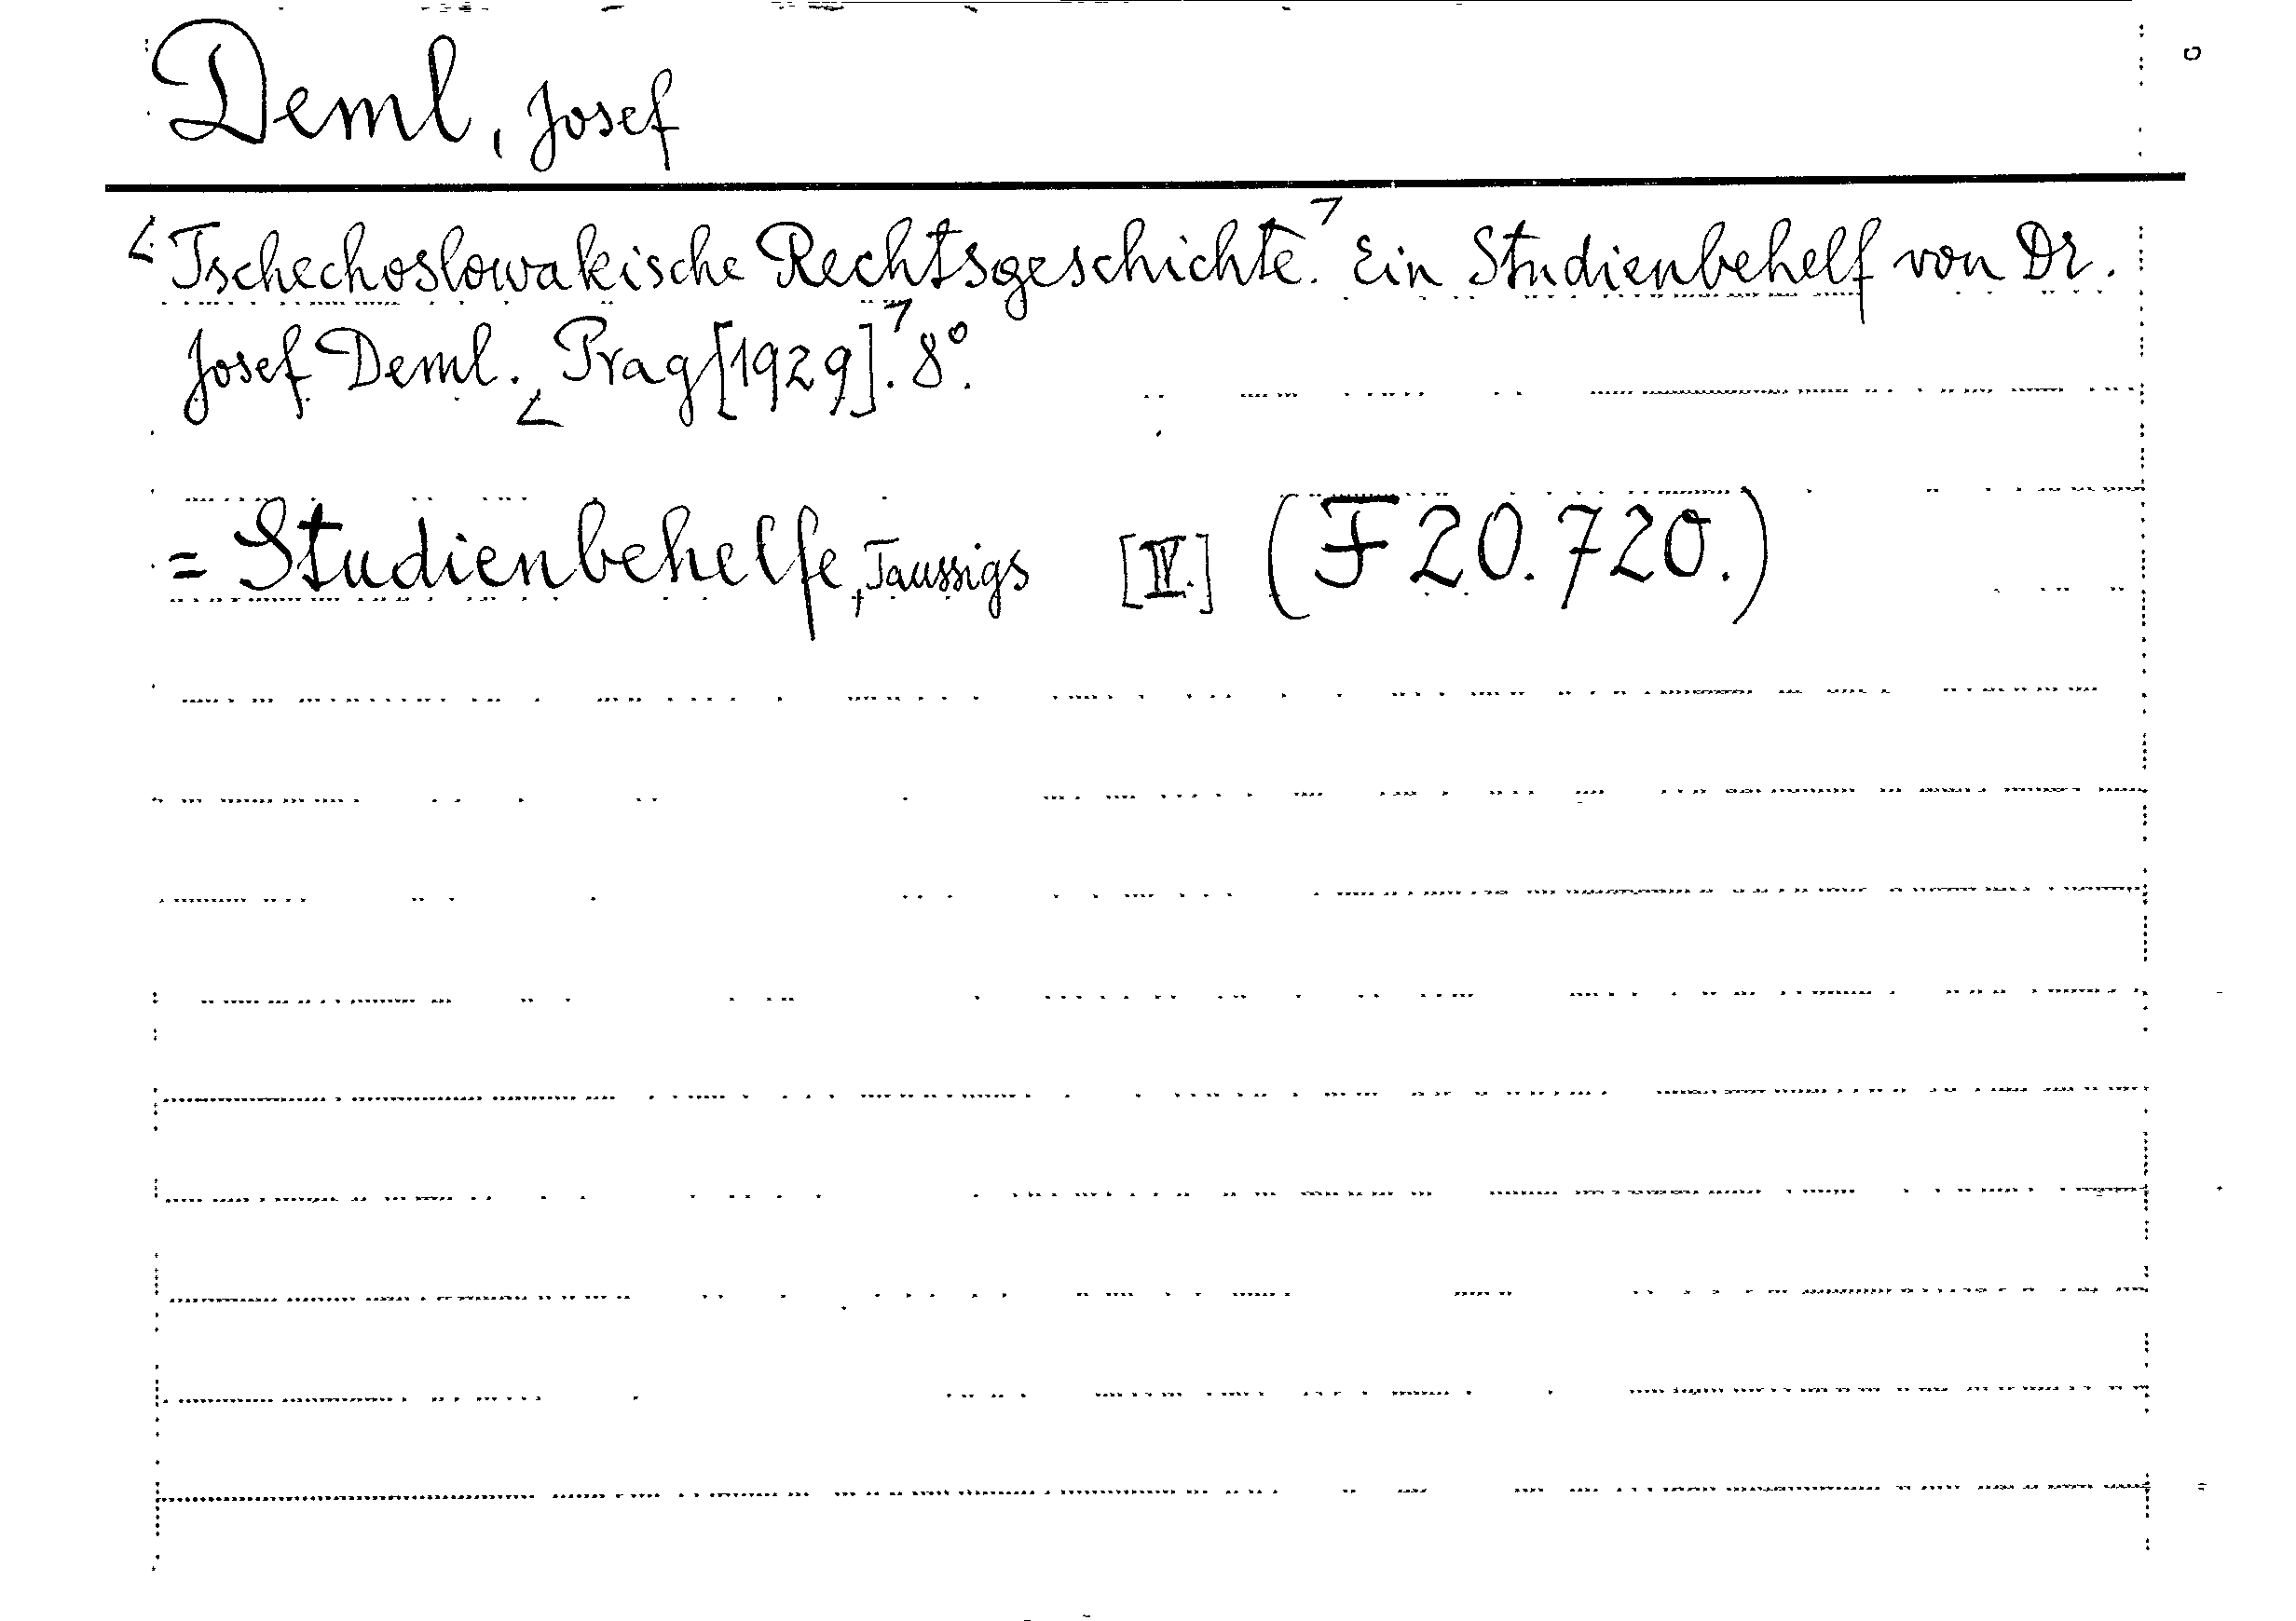 Deml, Josef
Tschechoslowakische Rechtsgeschichte. Ein Studienbehelf von Dr.
Josef Deml. Prag [1929]. 8°.
= Studienbehelfe, Taussigs [IV.] (F 20.720.)